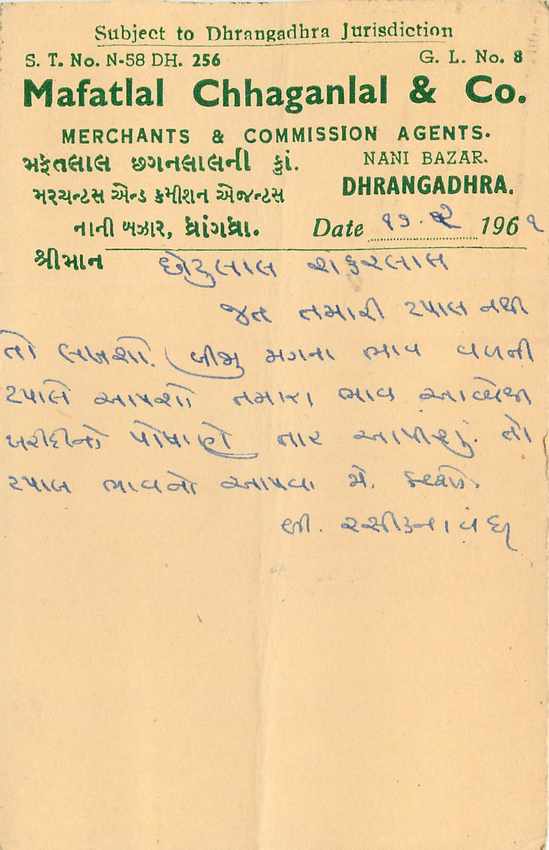 Subject to Dhrangadhra Jurisdiction
S. T. No. N-58 DH. 256 G. L. No. 8
Mafatlal Chhaganlal & Co.
MERCHANTS & COMMISSION AGENTS.
મફતલાલ છગનલાલની કાું. NANI BAZAR.
મરચન્ટસ એન્ડ કમીશન એજન્ટસ DHRANGADHRA.
નાની બઝાર, ધ્રાંગધ્રા. Date ૧૭ ૨ 196૧
શ્રીમાન છોટુલાલ શકરલાલ
જત તમારી ટપાલ નથી
તો લખશો. બીજુ મગના ભાવ વળની
ટપાલે આપશો તમારા ભાવ આવ્યેથી
ખરીદીનો પોષાણે તાર આપીશું. તો
ટપાલ ભાવનો આપવા મે.
લી. રસીકના વંદન